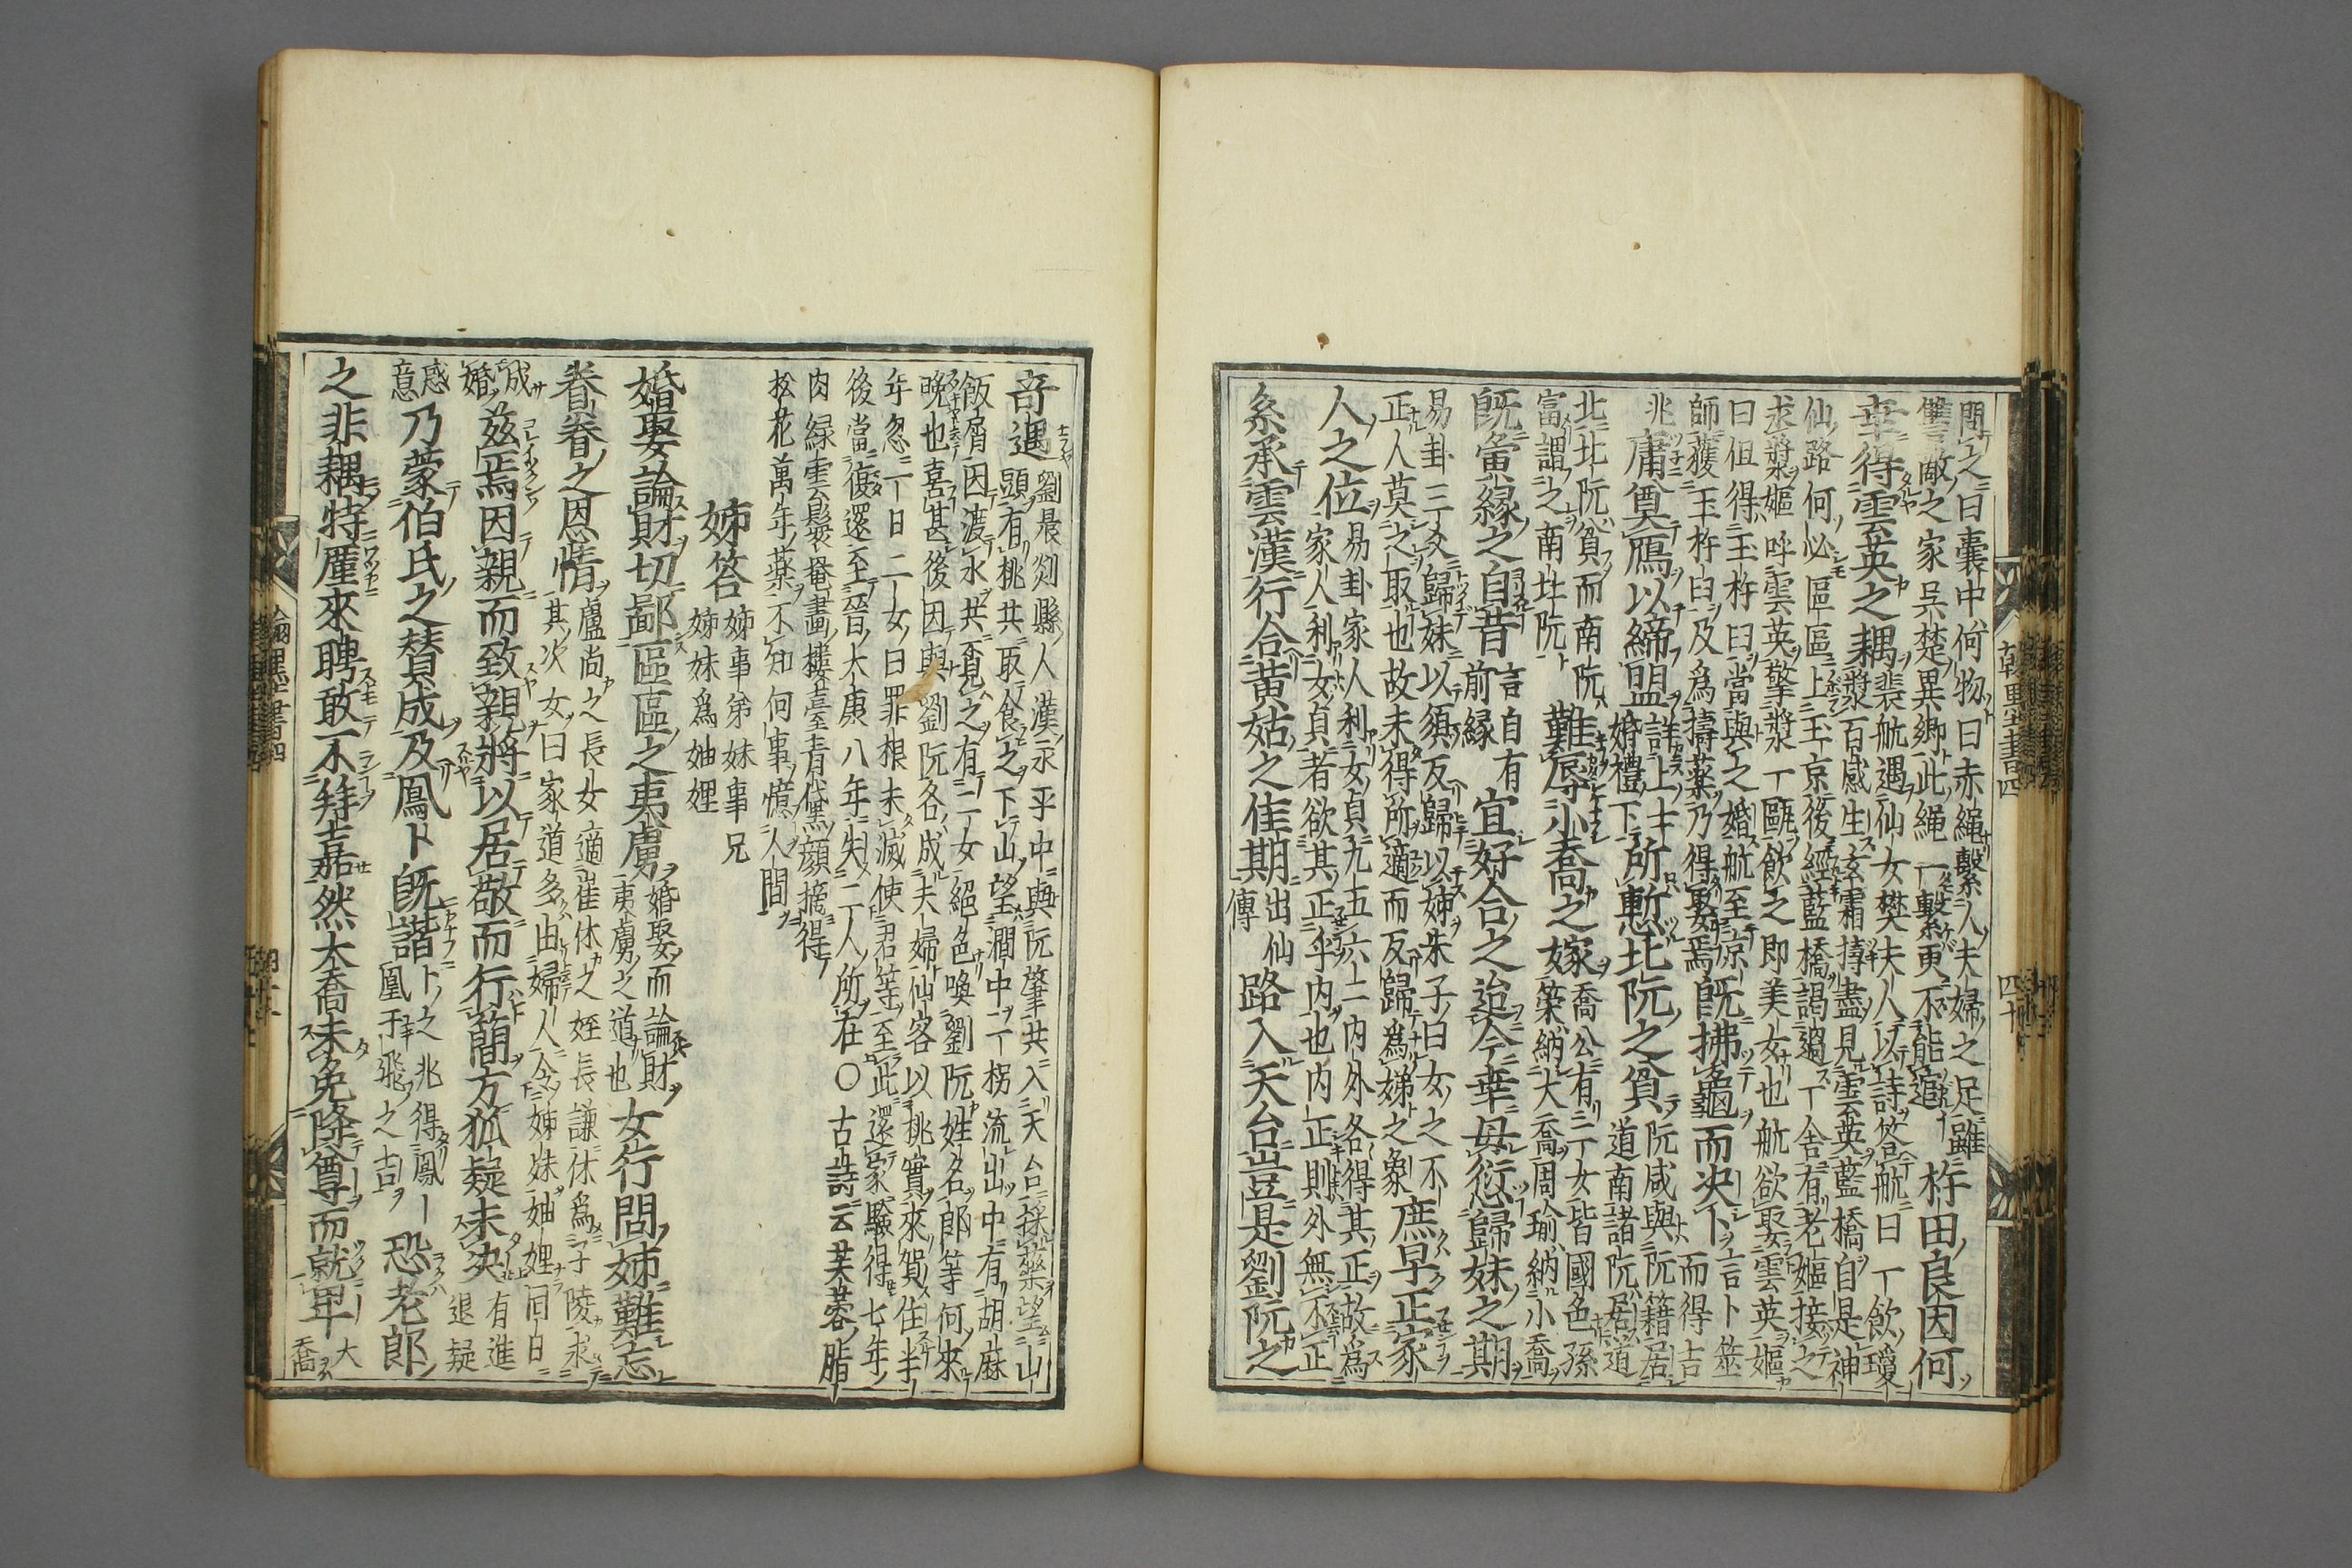 問之曰囊中何物曰赤繩繫人夫婦之足雖
讐敵之家吳楚異鄉此繩一繫更不能逭
杵田良因何
幸得雲英之耦
裴航遇仙女樊夫人以詩答航曰一飲瓊
漿百感生玄霜擣盡見雲英藍橋自是神
仙路何必區區上玉京後經藍橋謁過一舍有老嫗接之
求漿嫗呼雲英擎漿一甌飲之即美女也航欲娶雲英嫗
曰但得玉杵臼當與之婚航至京
師獲玉杵臼及為擣藥乃得娶焉
既拂龜而決卜
言卜筮
而得吉
兆
庸奠鴈以締盟
詳上士
婚禮下
所慙北阮之貧
阮咸與阮籍居
道南諸阮居道
北北阮貧而南阮
富謂之南北阮
難辱小喬之嫁
喬公有二女皆國色孫
策納大喬周瑜納小喬
既夤緣之自昔
言自有
前緣
宜好合之迨今幸毋愆歸妹之期
易卦三爻歸妹以須反歸以娣朱子曰女之不
正人莫之取也故未得所適而反歸為娣之象
庶早正家
人之位
易卦家人利女貞九五六二內外各得其正故為
家人利女貞者欲其正乎內也內正則外無不正
糸承雲漢行合黃姑之佳期
出仙
傳
路入天台豈是劉阮之
翰墨全書四
四十
奇遇
劉晨剡縣人漢永平中與阮肇共入天台採藥望山
頭有桃共取食之下山望澗中一柺流出中有胡麻
飯屑因渡水共覓之有二女絕色喚劉阮姓名郎等何來
晚也喜甚後因與劉阮各成夫婦仙客以桃實來賀住半
年忽一日二女曰罪根未滅使君等至此還家驗得七年
後當復還至晉太康八年失二人所在○古詩云芙蓉脂
肉綠雲鬟罨畫樓臺青黛顏摘得
松花萬年藥不知何事憶人間
姊答
姊事弟妹事兄
姊妹爲妯娌
婚娶論財切鄙區區之夷虜
婚娶而論財
夷虜之道也
女行問姊難忘
眷眷之恩情
盧尚之長女適崔休之姪長謙休為子陵求
其次女曰家道多由婦人令姊妹妯娌同日
成
婚
茲焉因親而致親將以居敬而行簡方狐疑未決
有進
退疑
感
意
乃蒙伯氏之賛成及鳳卜旣諧
卜之兆得鳳
凰于飛之吉
恐老郎
之非耦特厪來聘敢不拜嘉然大喬未免降尊而就卑
大
喬